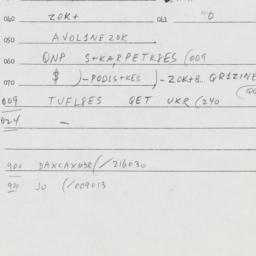 060 ZOK+ 061 0
050 AVOLINEZOK
060 QNP S+KARPETKBES (009
070 $ )-PODIS+KES )-ZOK+B. QRIZINE
009 TUFLBES QET UKR (240
024 –
900 DAXCAXMBR(/216030
900 JU (/009013